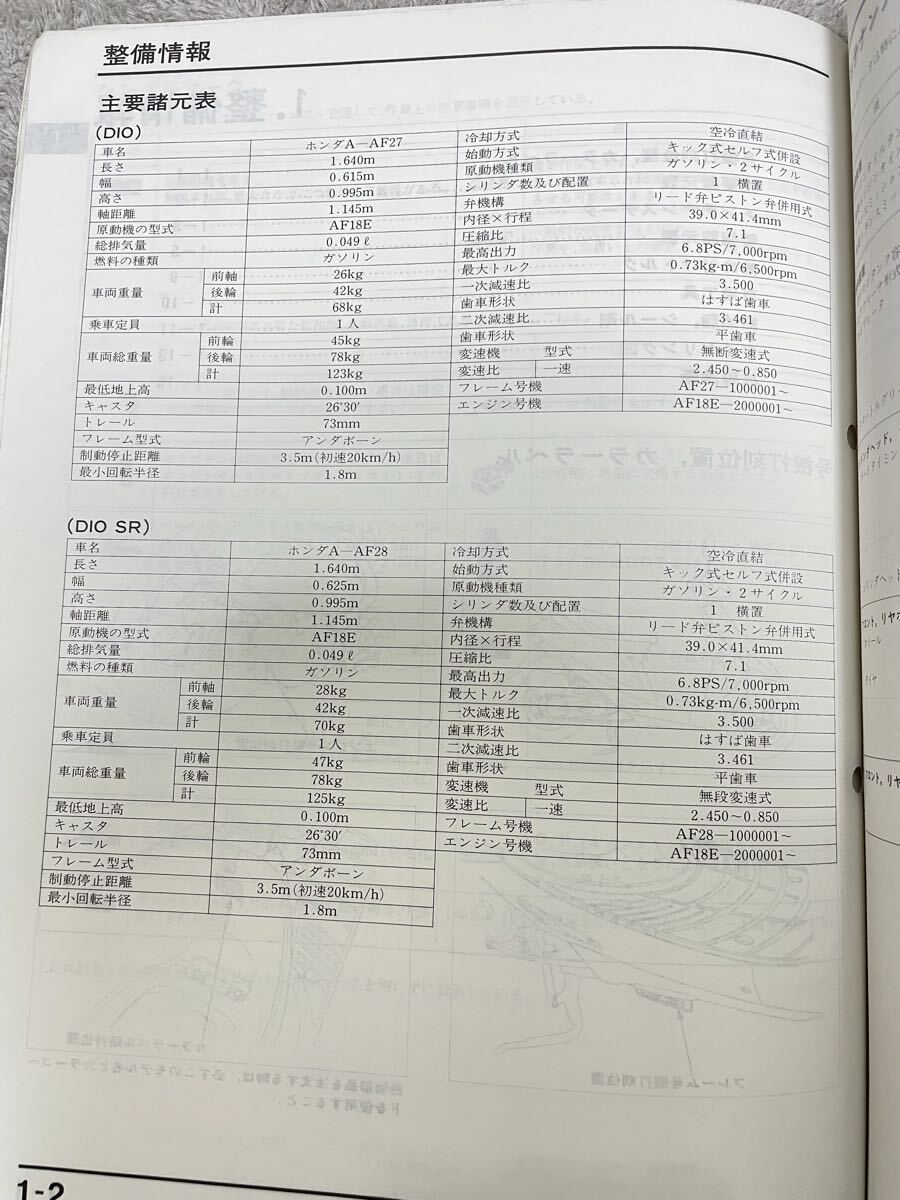 整備情報
主要諸元表
(DIO)
車名 ホンダA—AF27
長さ 1.640m
幅 0.615m
高さ 0.995m
軸距離 1.145m
原動機の型式 AF18E
総排気量 0.049ℓ
燃料の種類 ガソリン
車両重量 前軸 26kg
後輪 42kg
計 68kg
乗車定員 1人
車両総重量 前輪 45kg
後輪 78kg
計 123kg
最低地上高 0.100m
キャスタ 26°30′
トレール 73mm
フレーム型式 アンダボーン
制動停止距離 3.5m(初速20km/h)
最小回転半径 1.8m
冷却方式 空冷直結
始動方式 キック式セルフ式併設
原動機種類 ガソリン・2サイクル
シリンダ数及び配置 1 横置
弁機構 リード弁ピストン弁併用式
内径×行程 39.0×41.4mm
圧縮比 7.1
最高出力 6.8PS/7,000rpm
最大トルク 0.73kg-m/6,500rpm
一次減速比 3.500
歯車形状 はすば歯車
二次減速比 3.461
歯車形状 平歯車
変速機 型式 無断変速式
変速比 一速 2.450～0.850
フレーム号機 AF27—1000001～
エンジン号機 AF18E—2000001～
(DIO SR)
車名 ホンダA—AF28
長さ 1.640m
幅 0.625m
高さ 0.995m
軸距離 1.145m
原動機の型式 AF18E
総排気量 0.049ℓ
燃料の種類 ガソリン
車両重量 前軸 28kg
後輪 42kg
計 70kg
乗車定員 1人
車両総重量 前輪 47kg
後輪 78kg
計 125kg
最低地上高 0.100m
キャスタ 26°30′
トレール 73mm
フレーム型式 アンダボーン
制動停止距離 3.5m(初速20km/h)
最小回転半径 1.8m
冷却方式 空冷直結
始動方式 キック式セルフ式併設
原動機種類 ガソリン・2サイクル
シリンダ数及び配置 1 横置
弁機構 リード弁ピストン弁併用式
内径×行程 39.0×41.4mm
圧縮比 7.1
最高出力 6.8PS/7,000rpm
最大トルク 0.73kg-m/6,500rpm
一次減速比 3.500
歯車形状 はすば歯車
二次減速比 3.461
歯車形状 平歯車
変速機 型式 無段変速式
変速比 一速 2.450～0.850
フレーム号機 AF28—1000001～
エンジン号機 AF18E—2000001～
1-2